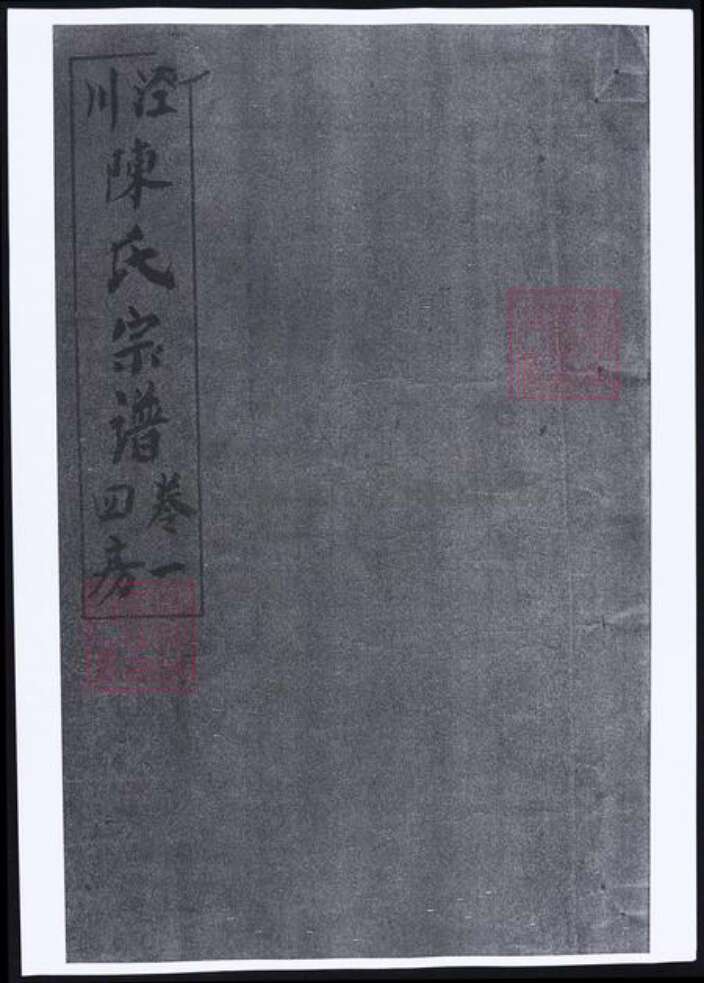 涇川
陳氏宗譜
卷一
四房